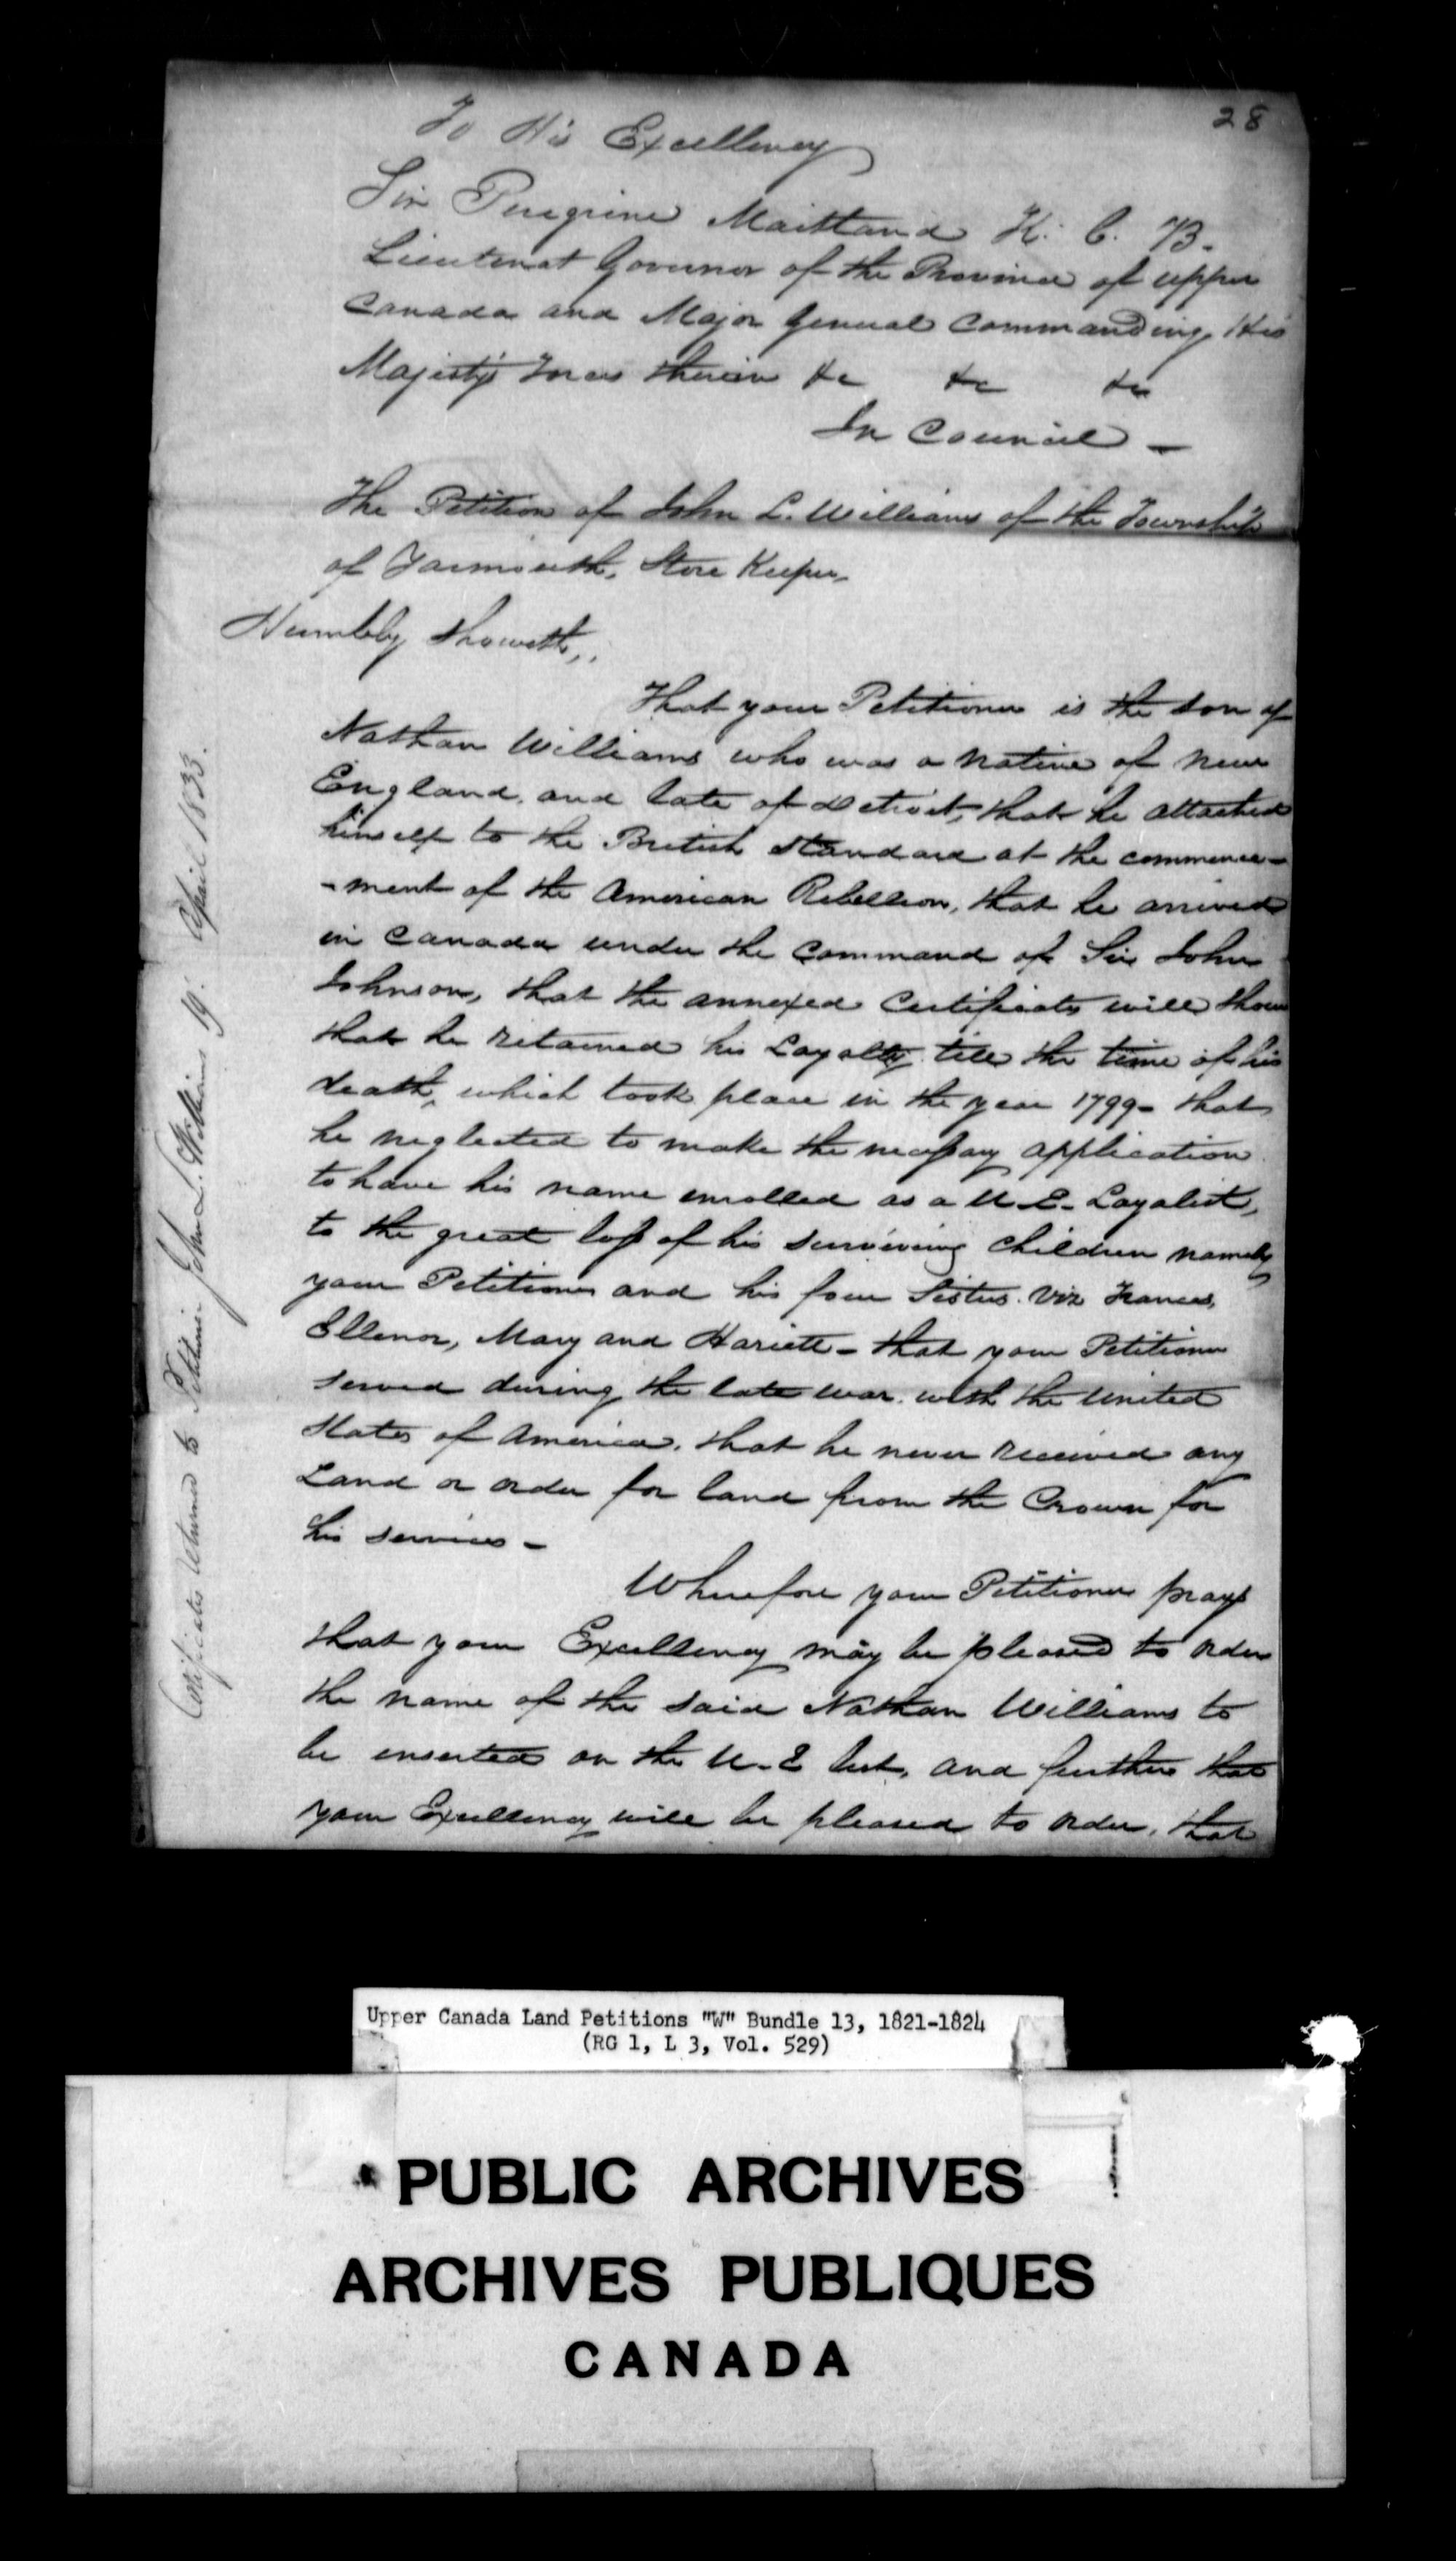 28
To His Excellency
Sir Peregrine Maitland K. C. B.
Lieutenat Governor of the Province of upper
Canada and Major General Commanding His
Majesty's Forces therein &c &c &c
In Council -
The Petition of John L. Williams of the Township
of Yarmouth, Store Keeper,
Humbly Showeth,
That your Petitioner is the Son of
Nathan Williams who was a native of New
England, and late of Detroit, that he attached
himself to the British Standard at the commence-
-ment of the American Rebellion, that he arrived
in Canada under the Command of Sir John
Johnson, that the annexed Certificate will show
that he retained his Loyalty till the time of his
death, which took place in the year 1799 - that
he neglected to make the necessary application
to have his name enrolled as a U. E. Loyalist,
to the great loss of his surviving Children namely
your Petitioner and his four Sisters. Viz Frances,
Ellenor, Mary and Hariett - that your Petitioner
served during the late war with the United
States of America. that he never received any
Land or order for land from the Crown for
his services -
Wherefore your Petitioner prays
that your Excellency may be pleased to order
the name of the said Nathan Williams to
be inserted on the U. E list, and further that
your Excellency will be pleased to order, that
Certificates returned to Petitioner John L. Williams 19. April 1833.
Upper Canada Land Petitions "W" Bundle 13, 1821-1824
(RG 1, L 3, Vol. 529)
PUBLIC ARCHIVES
ARCHIVES PUBLIQUES
CANADA